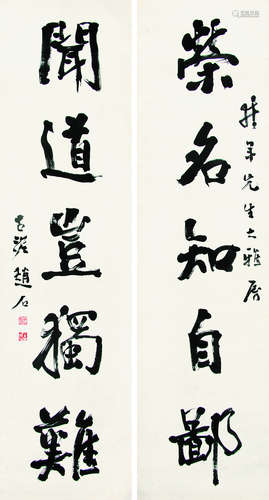 榮名知自鄙
先生之雅屬
聞道豈獨難
古泥趙石